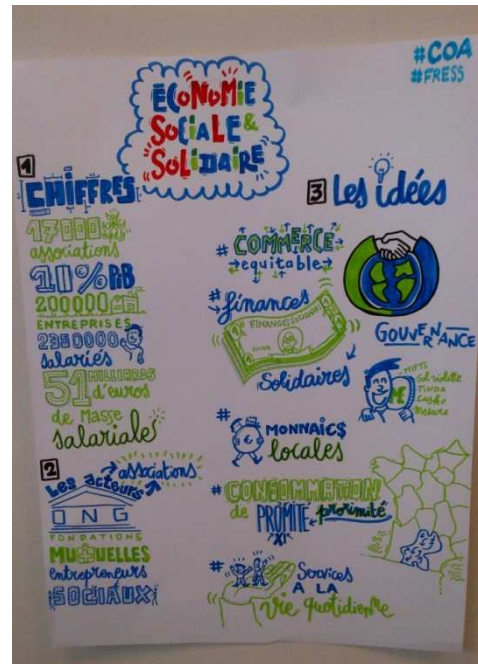 #COA
#FRESS
ÉCONOMIE
SOCIALE &
SOLIDAIRE
1
CHIFFRES
associations
10% PIB
200000
ENTREPRISES
2380000
salariés
51 MILLIARDS
d'euros
de Masse
salariale
2
Les acteurs
associations
ONG
FONDATIONS
MUTUELLES
entrepreneurs
SOCIAUX
3 Les idées
# COMMERCE
equitable
# finances
FINANCES SOLIDAIRES
Solidaires
# MONNAIES
locales
# CONSOMMATION
de PROMITÉ proximité
XI
# Services
A LA
vie quotidienne
GOUVERNANCE
ME